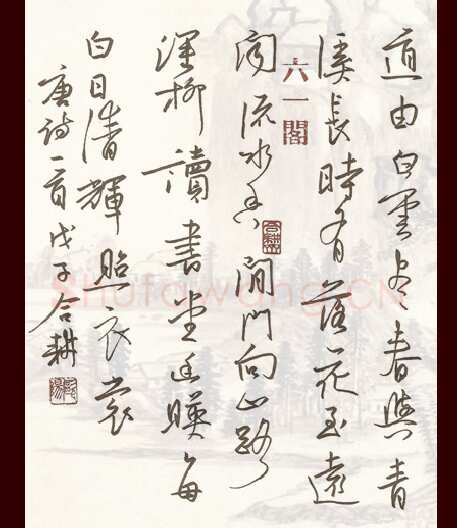 道由白雲盡春與青
溪長時有落花至遠
聞流水香閒門向山路
深柳讀書堂幽暎每
白日清輝照衣裳
唐詩一首戊子合耕
六一閣
Shufawang.CN